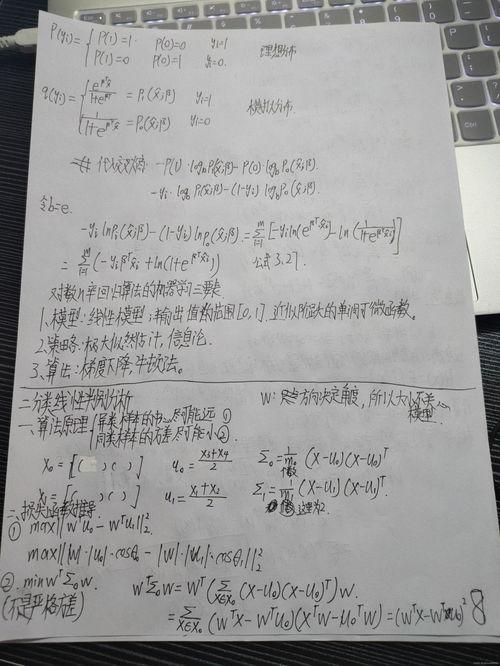 P(yi)= { P(1)=1. P(0)=0 yi=1
P(1)=0 P(0)=1 yi=0. 理想分布
q(yi)= { e^{β^T x̂}/(1+e^{β^T x̂}) = P₁(x̂;β) yi=1
1/(1+e^{β^T x̂}) = P₀(x̂;β) yi=0 模拟分布.
代入交叉熵: -P(1)·log_b P₁(x̂;β)-P(0)·log_b P₀(x̂;β).
-yi·log_b P₁(x̂;β)-(1-yi)log_b P₀(x̂;β).
令b=e.
-yi lnP₁(x̂;β)-(1-yi)lnP₀(x̂;β).=∑_{i=1}^{m}[-yi ln(e^{β^T x̂i})-ln(1/(1+e^{β^T x̂i}))]
= ∑_{i=1}^{m}(-yi β^T x̂i+ln(1+e^{β^T x̂i})) 公式3.27.
对数几率回归算法的机器学习三要素
1.模型:线性模型;输出值的范围[0,1].近似阶跃的单调可微函数。
2.策略:极大似然估计,信息论.
3.算法:梯度下降,牛顿法。
二分类线性判别分析 W:只是方向决定角度,所以大小不关心
模型.
一、算法原理 { 异类样本的中心尽可能远①
同类样本的方差尽可能小②.
X₀=[( )( )] u₀=(x₃+x₄)/2 ∑₀=1/m₀(X-u₀)(X-u₀)^T
X₁=[( )( )] u₁=(x₁+x₂)/2 ∑₁=1/m₁(X-u₁)(X-u₁)^T.
这里为2.
二、损失函数推导
① max||W^T u₀-W^T u₁||₂².
max|||W|·|u₀|·cosθ₀-|W|·|u₁|·cosθ₁||₂²
② minW^T∑₀W. W^T∑₀W=W^T(∑_{X∈X₀}(X-u₀)(X-u₀)^T)W.
(不是严格方差) =∑_{X∈X₀}(W^T X-W^T u₀)(X^T W-u₀^T W)=(W^T X-W^T u₀)²
8